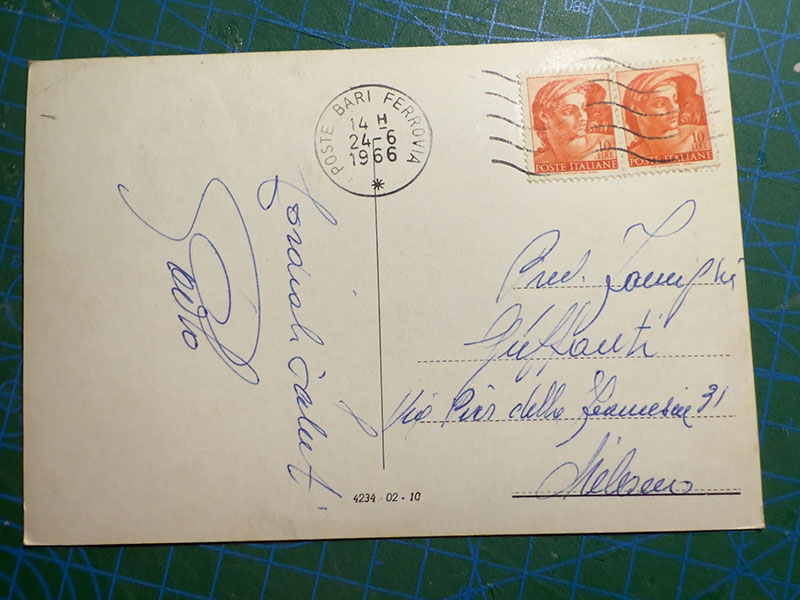 POSTE BARI FERROVIA
14 H
24-6
1966
10
LIRE
POSTE ITALIANE
10
LIRE
POSTE ITALIANE
Cordiali Saluti
Giuffanti
Via Pier della Francesca 31
Milano
4234-02-10